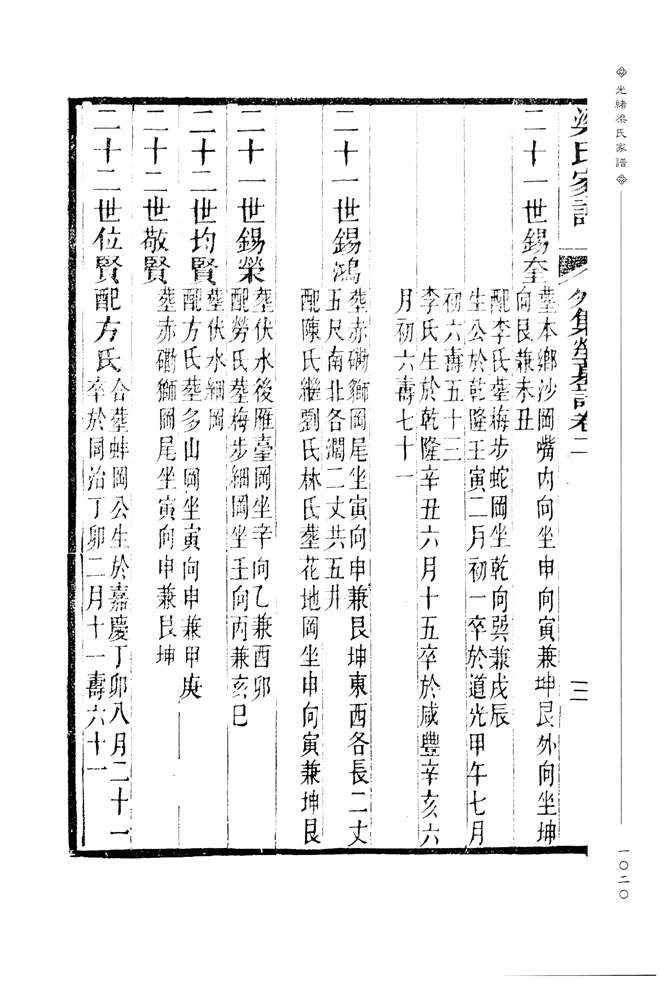 光緒梁氏家譜
一〇二〇
梁氏家譜 外集塋墓記卷二 三
二十一世錫奎
葬本鄉沙岡嘴內向坐申向寅兼坤艮外向坐坤
向艮兼未丑
配李氏葬梅步蛇岡坐乾向巽兼戌辰
生公於乾隆壬寅二月初一卒於道光甲午七月
初六壽五十三
李氏生於乾隆辛丑六月十五卒於咸豐辛亥六
月初六壽七十一
二十一世錫鴻
葬赤磡獅岡尾坐寅向申兼艮坤東西各長二丈
五尺南北各濶二丈共五井
配陳氏繼劉氏林氏葬花地岡坐申向寅兼坤艮
二十一世錫榮
葬伏水後雁臺岡坐辛向乙兼酉卯
配勞氏葬梅步細岡坐壬向丙兼亥巳
二十二世均賢
葬伏水細岡
配方氏葬多山岡坐寅向申兼甲庚
二十二世敬賢
葬赤磡獅岡尾坐寅向申兼艮坤
二十二世位賢配方氏
合葬蚌岡公生於嘉慶丁卯八月二十一
卒於同治丁卯二月十一壽六十一